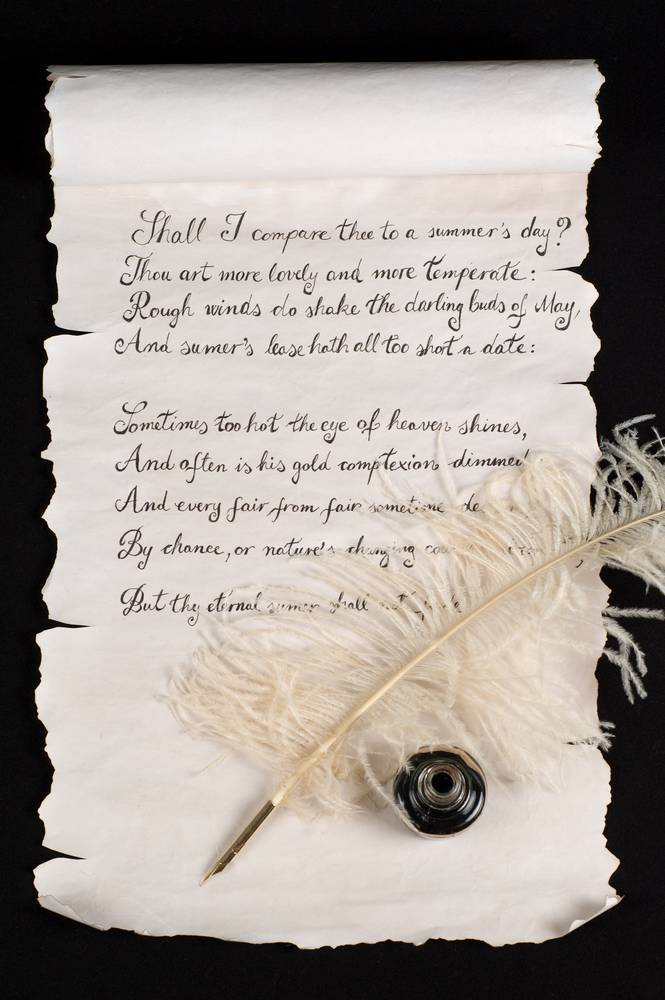 Shall I compare thee to a summer's day?
Thou art more lovely and more temperate:
Rough winds do shake the darling buds of May,
And sumer's lease hath all too shot a date:
Sometimes too hot the eye of heaven shines,
And often is his gold complexion dimmed
And every fair from fair sometime de
By chance, or nature's changing
But thy eternal sumer shall not